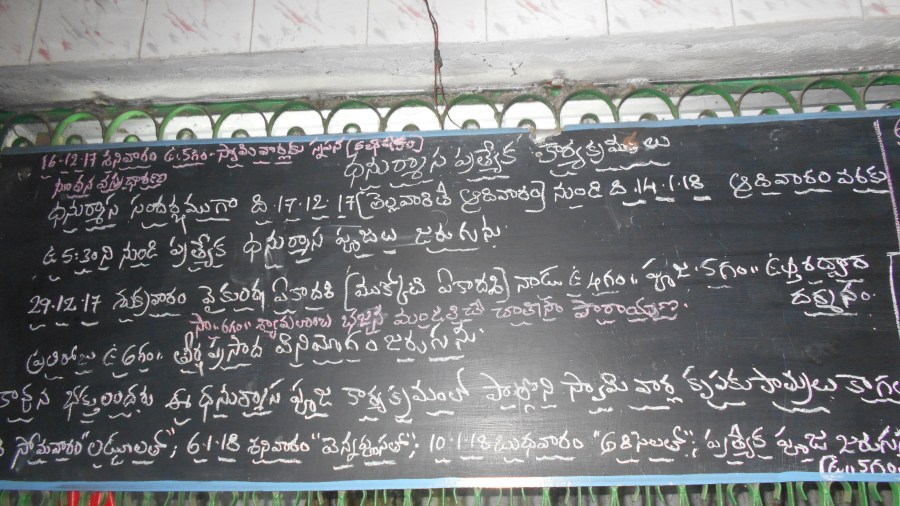 16-12-17 శనివారం ఉ.5గం. స్వామి వార్లకు స్నపన (అభిషేకం)
ధనుర్మాస ప్రత్యేక కార్యక్రమాలు
నూతన వస్త్రధారణ
ధనుర్మాస సందర్భముగా ది.17.12.17 (తెల్లవారితే ఆదివారం) నుండి ది.14.1.18 ఆదివారం వరకు
ఉ 5:30ని నుండి ప్రత్యేక ధనుర్మాస పూజలు జరుగును.
29.12.17 శుక్రవారం వైకుంఠ ఏకాదశి (ముక్కోటి ఏకాదశి) నాడు ఉ 4గం" పూజ. 5గం" ఉత్తరద్వార
దర్శనం.
సా" 6గం" శ్యామలాంబ భజన మండలిచే పారాయణ
ప్రతిరోజు ఉ 6గం" తీర్థ ప్రసాద వినియోగం జరుగును.
కావున భక్తులందరు ఈ ధనుర్మాస పూజ కార్యక్రమంలో పాల్గొని స్వామి వార్ల కృపకుపాత్రులు కాగల
సోమవారం "లడ్డూలతో"; 6.1.18 శనివారం "వెన్న"; 10.1.18 బుధవారం ప్రత్యేక పూజ జరుగును
(ఉ.5గం.